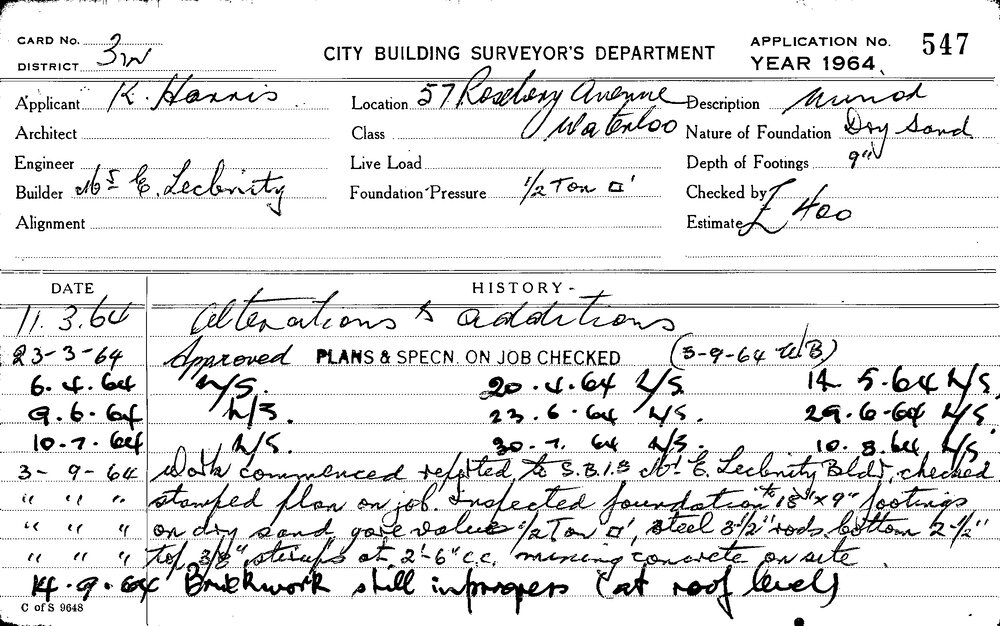 CARD No. 3W
DISTRICT
CITY BUILDING SURVEYOR'S DEPARTMENT
APPLICATION No. 547
YEAR 1964
Applicant K. Harris
Location 57 Rosebery Avenue
Waterloo
Description Minor
Architect
Class
Nature of Foundation Dry Sand
Engineer
Live Load
Depth of Footings 9"
Builder Mr E. Lecbnity
Foundation Pressure 1/2 Ton □'
Checked by
Alignment
Estimate £ 400
DATE HISTORY -
11.3.64 Alterations & additions
23-3-64 Approved PLANS & SPECN. ON JOB CHECKED (3-9-64 W.B.)
6.4.64 N/S. 20.4.64 N/S. 14.5.64 N/S.
9.6.64 N/S. 23.6.64 N/S. 29.6.64 N/S.
10.7.64 N/S. 30.7.64 N/S. 10.8.64 N/S.
3-9-64 Work commenced reported to S.B.I.B Mr E. Lecbnity Bldr, checked
" " " stamped plan on job. Inspected foundation to 18" x 9" footings
" " " on dry sand gave value 1/2 Ton □', steel 3-1/2" rods bottom 2-1/2"
" " " top, 3/8" stirups at 2'-6" c.c. mixing concrete on site
14.9.64 Brickwork still in progress (at roof level)
C of S 9648